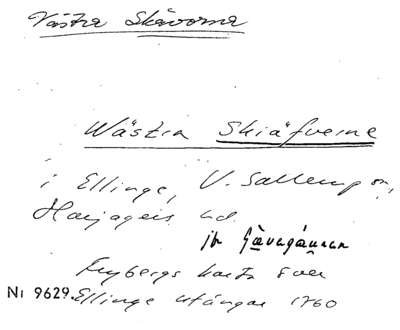 Västra Skävorna
Wästra Skiäfverne
i Ellinge, V. Sallerup sn,
Harjagers hd.
jfr
Frybergs karta över
Ni 9629. Ellinge utängar 1760